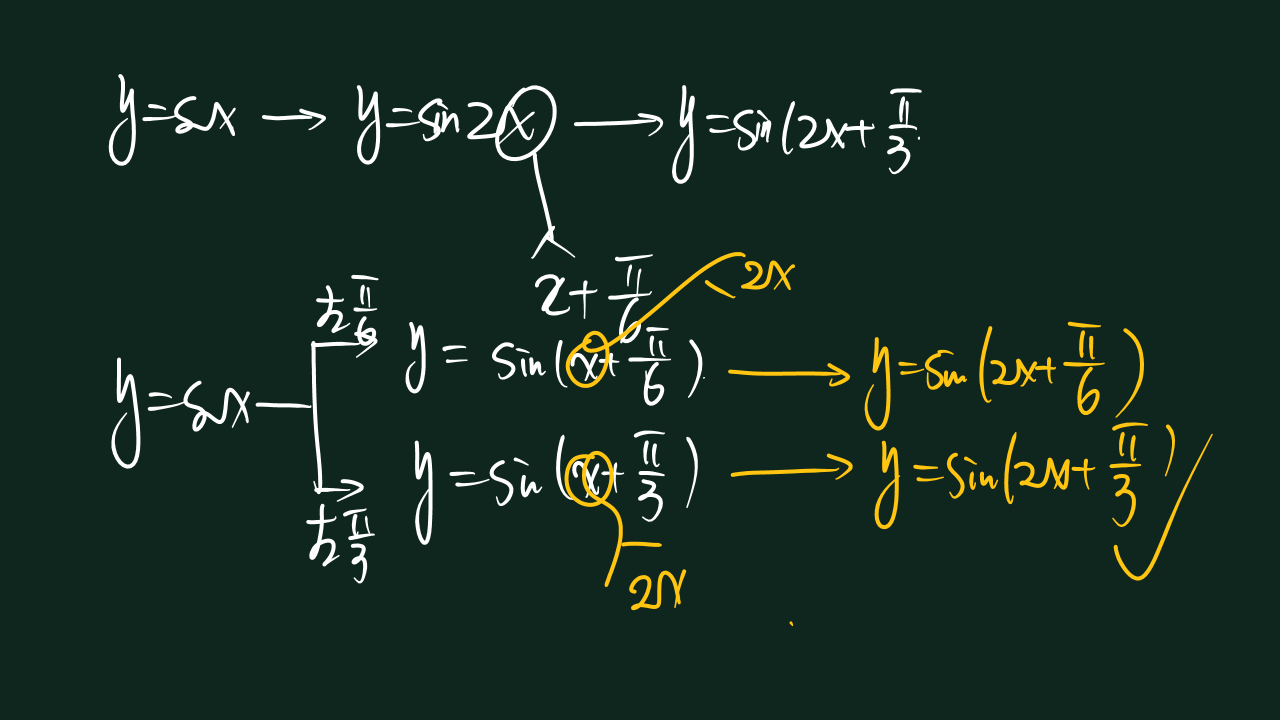 y=sinx → y=sin2x → y=sin(2x+π/3
x+π/6
2x
左π/6
y=sin(x+π/6) → y=sin(2x+π/6)
y=sinx
y=sin(x+π/3) → y=sin(2x+π/3) ✓
左π/3
2x